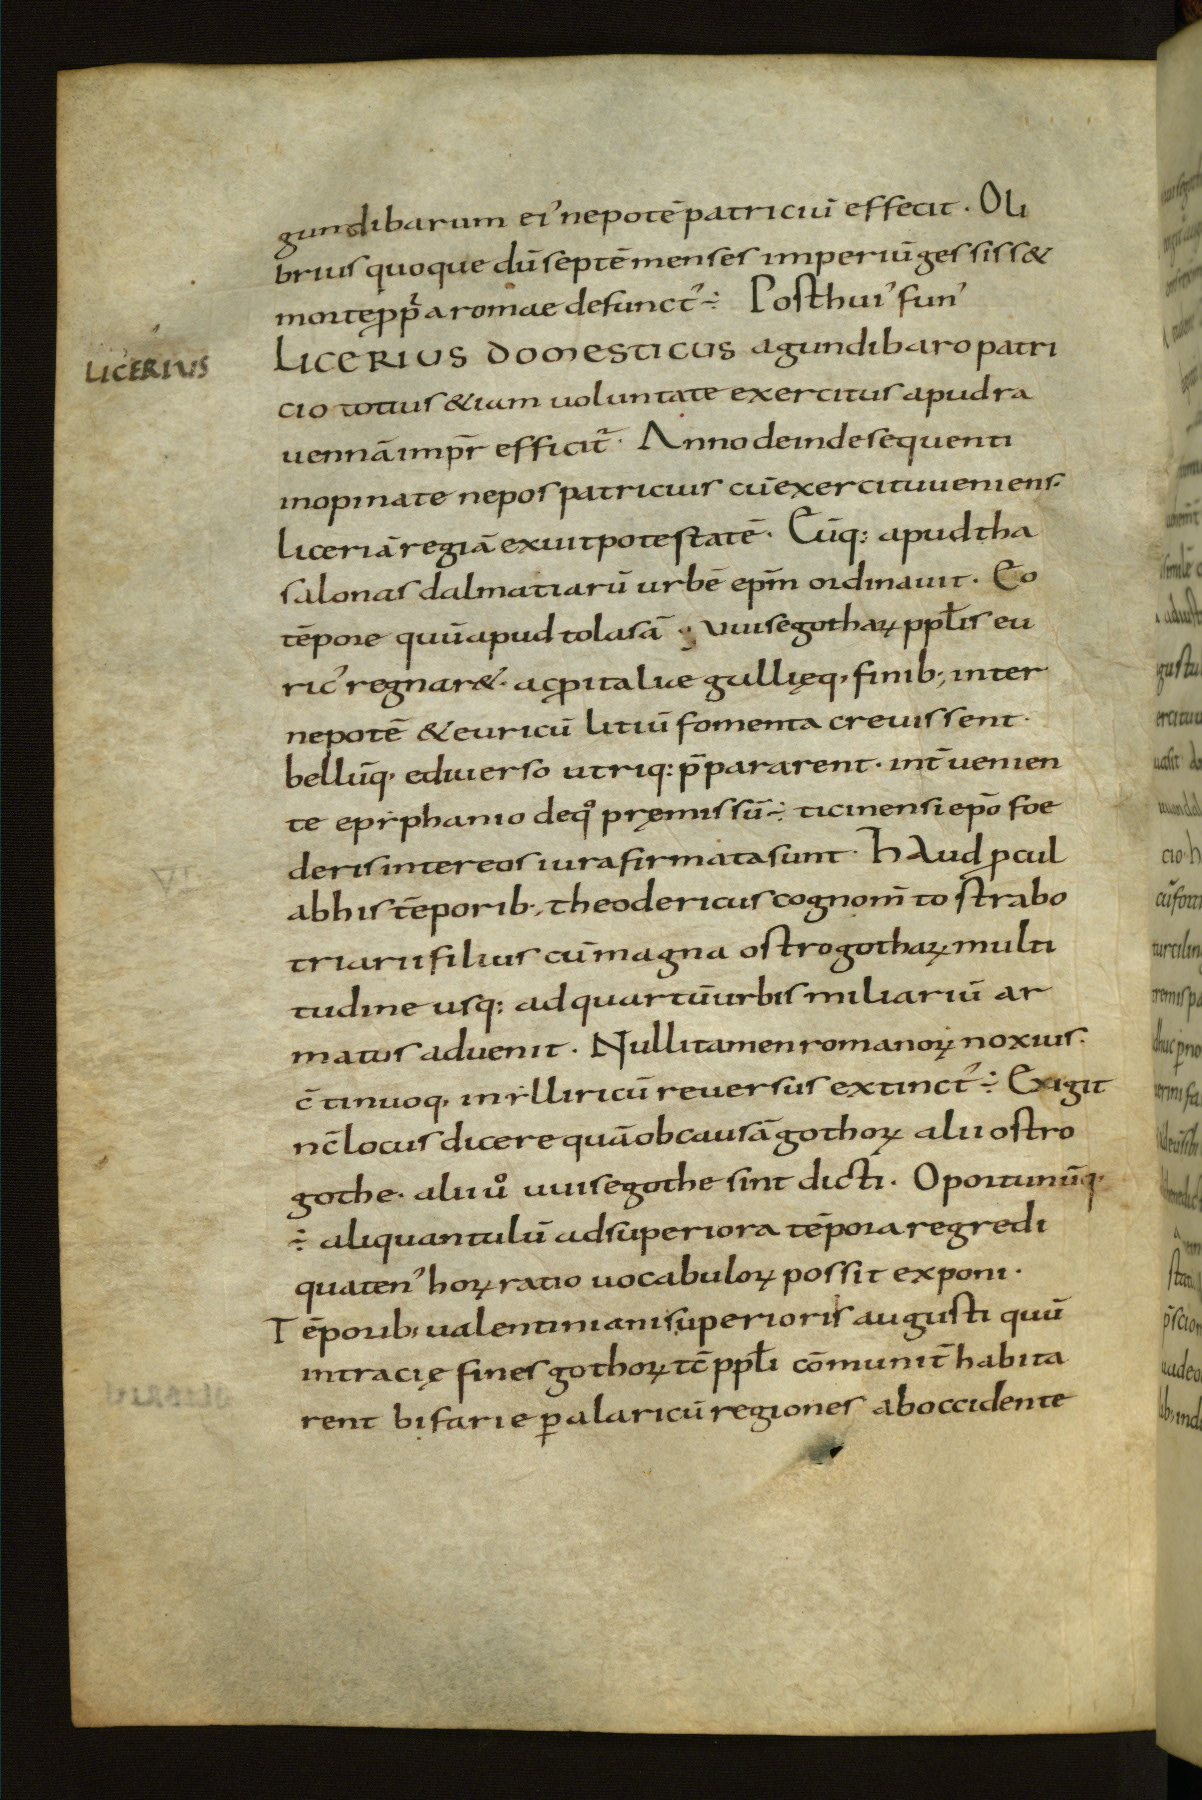 gundibarum ei᾽ nepotē patriciū effecit. Oli
brius quoque dū septē menses imperiū gessiss&
morte ꝓpͥa romae defunct᾽ ÷ Post hui᾽ fun᾽
LICERIUS
LICERIUS DOMESTICUS a gundibaro patri
cio totius &iam uoluntate exercitus apud ra
uennā impr̄ efficit᷑. Anno deinde sequenti
inopinate nepos patricius cū exercitu ueniens.
liceriā regiā exuit potestatē. Eūq: apud tha
salonas dalmatiarū urbē ep̄m ordinauit. Eo
tēpore quū apud tolasā uuisegothaꝝ ppl̄is eu
ric᾽ regnar&. ac ꝓ italiae gullięq, finib; inter
nepotē & euricū litiū fomenta creuissent.
bellūq, ediuerso utriq: p̄pararent. int̄ uenien
te epiphanio deqͦ pręmissū ÷ ticinensi ep̄o foe
deris inter eos iura firmata sunt. hAud ꝓcul
ab his tēporib; theodericus cognom̄to strabo
triarii filius cū magna ostrogothaꝝ multi
tudine usq: ad quartū urbis miliariū ar
matus aduenit. Nulli tamen romanoꝝ noxius.
c̄tinuoq, in illiricū reuersus extinct᾽ ÷ Exigit
nc̄ locus dicere quā ob causā gothoꝝ alii ostro
gothe. alii uͦ uuisegothe sint dicti. Oportunūq,
÷ aliquantulū ad superiora tēpora regredi
quaten᾽ hoꝝ ratio uocabuloꝝ possit exponi.
Tēporib; ualentiniani superioris augusti quū
intracię fines gothoꝝ tc̄ ppl̄i cōmunit̄ habita
rent bifarie ꝑ alaricū regiones ab occidente